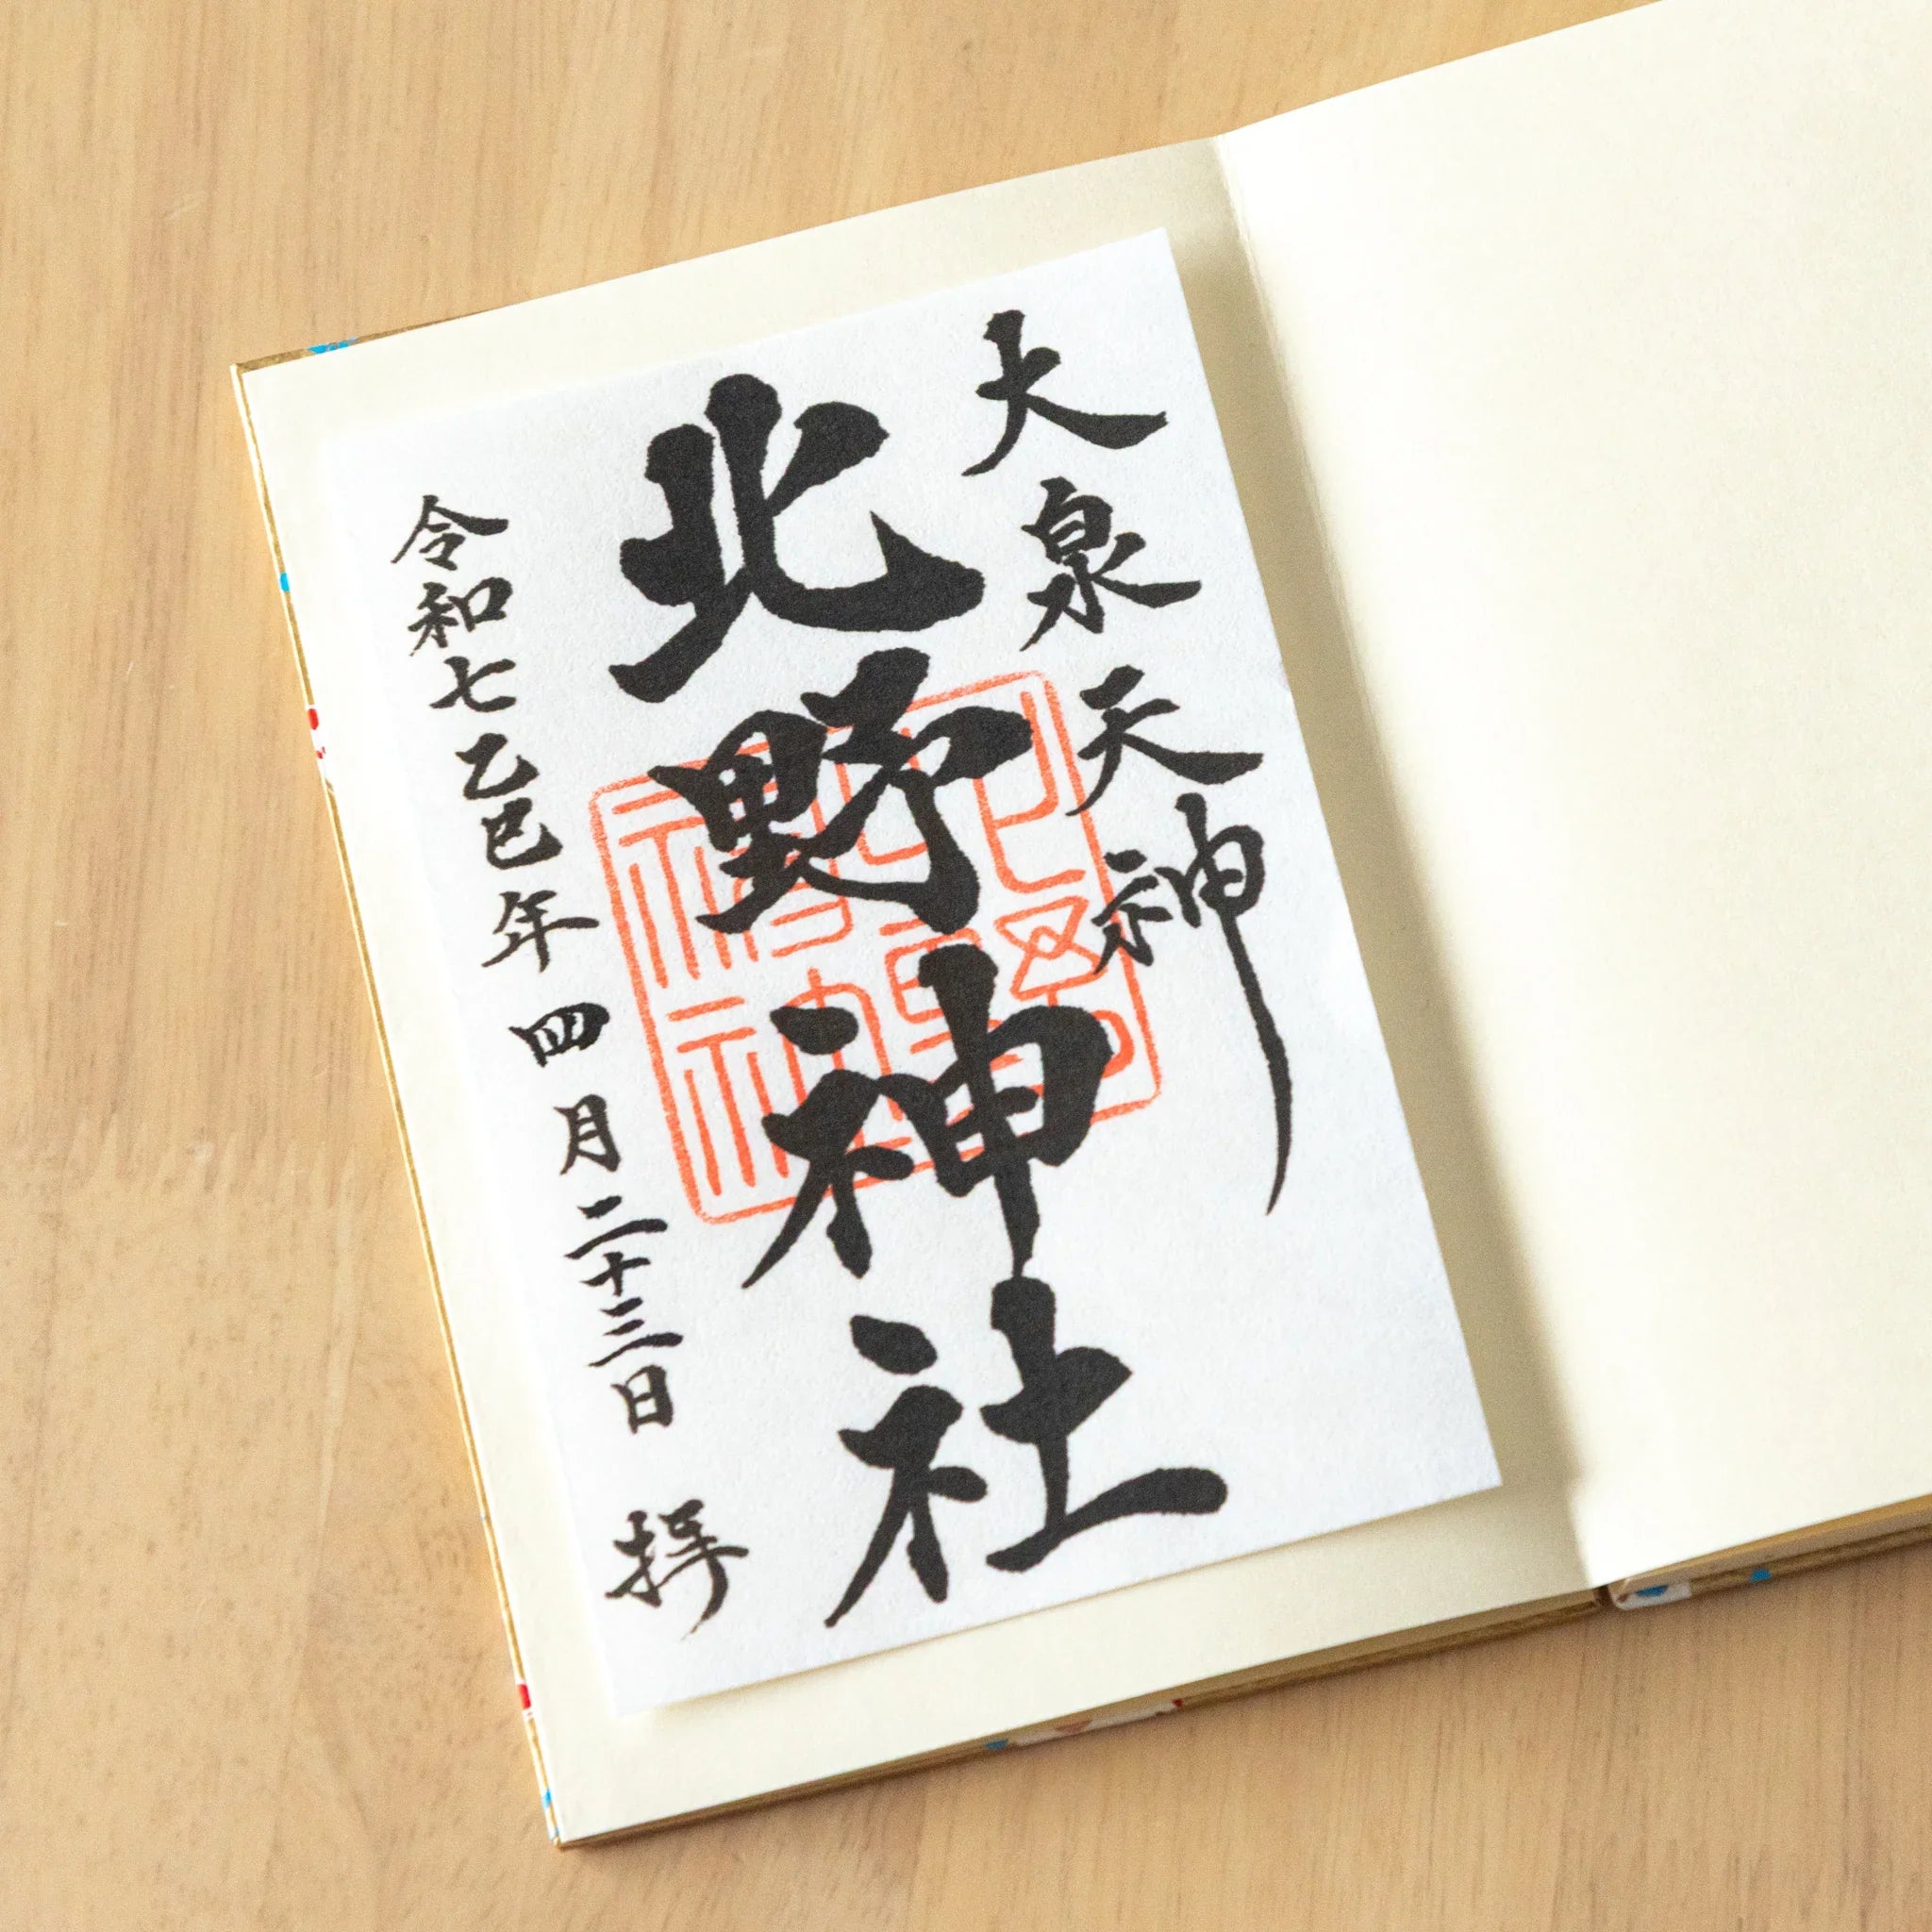 大泉天神
北野神社
令和七乙巳年四月二十三日 拝